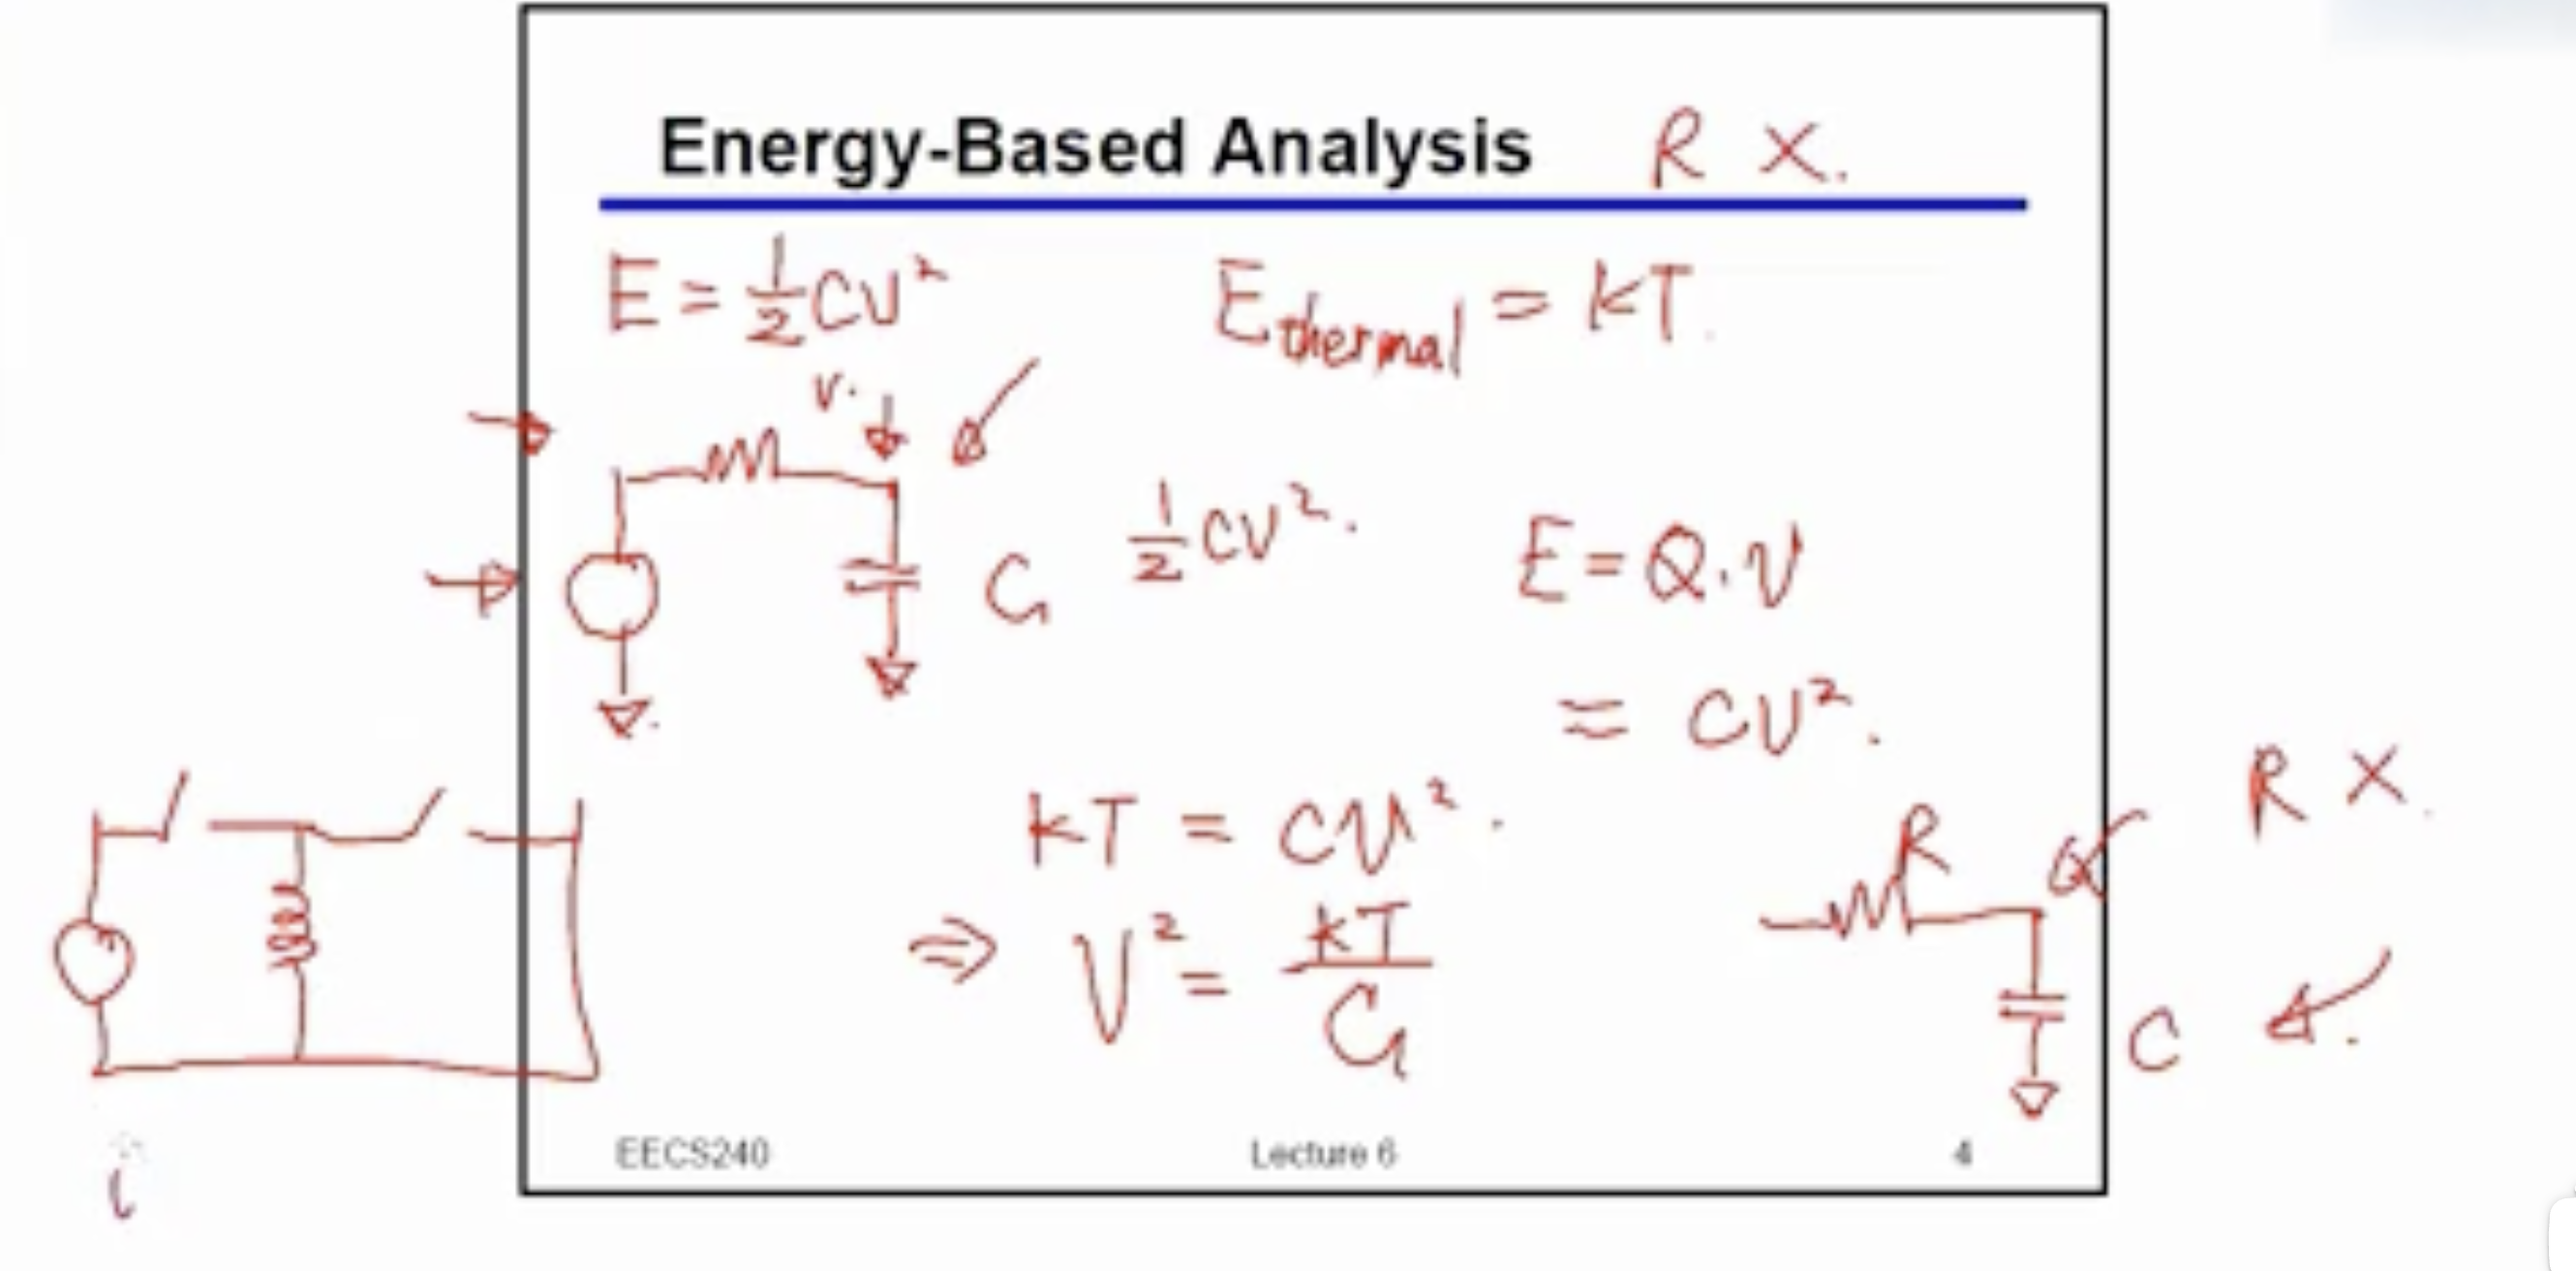 Energy-Based Analysis R X.
E = 1/2 CV² E thermal = kT.
V.
C 1/2 CV². E = Q.V
= CV².
R X.
kT = CV².
R
⇒ V² = kT/C
C
i
EECS240 Lecture 6 4